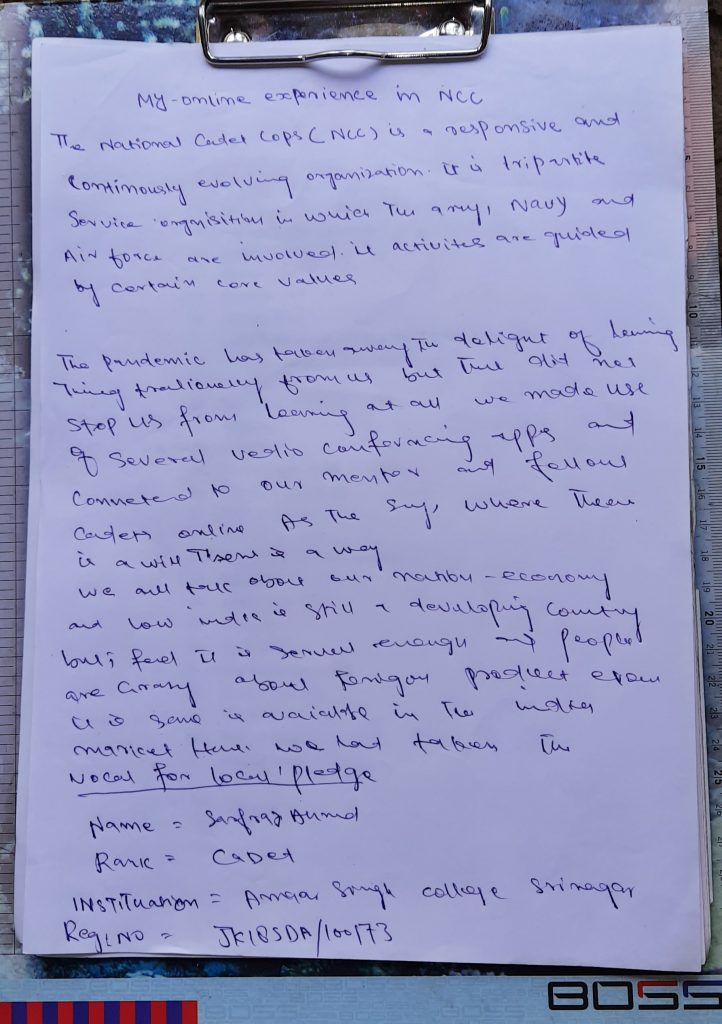 MY-online experience in NCC
The National Cadet Cops (NCC) is a responsive and
Continously evolving organization. it is tripartite
Service orgnisition in which The army, Navy and
Air force are involved. it activites are guided
by certain core values
The pandemic has taken away The delight of
Thing from us but That did not
Stop us from learning at all we made use
of Several vedio confurncing apps and
Conneted to our mentor and fellous
cadets online As the say, where There
is a will There is a way
we all talk about our nation - economy
and how india is still a developing Country
but i feel it is enough and people
are Crazy about product even
it is same is avaiable in The indian
market Hence we had taken The
Vocal for local' pledge
Name = Sarfraz Ahmd
Rank = Cadet
INSTITuation = Amar Singh college Srinagar
Reg.NO = JK18SDA/100173
BOSS